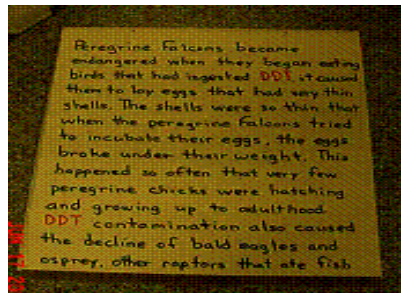 Peregrine Falcons became
endangered when they began eating
birds that had ingested DDT it caused
them to lay eggs that had very thin
shells. The shells were so thin that
when the peregrine falcons tried
to incubate their eggs, the eggs
broke under their weight. This
happened so often that very few
peregrine chicks were hatching
and growing up to adulthood.
DDT contamination also caused
the decline of bald eagles and
osprey, other raptors that ate fish